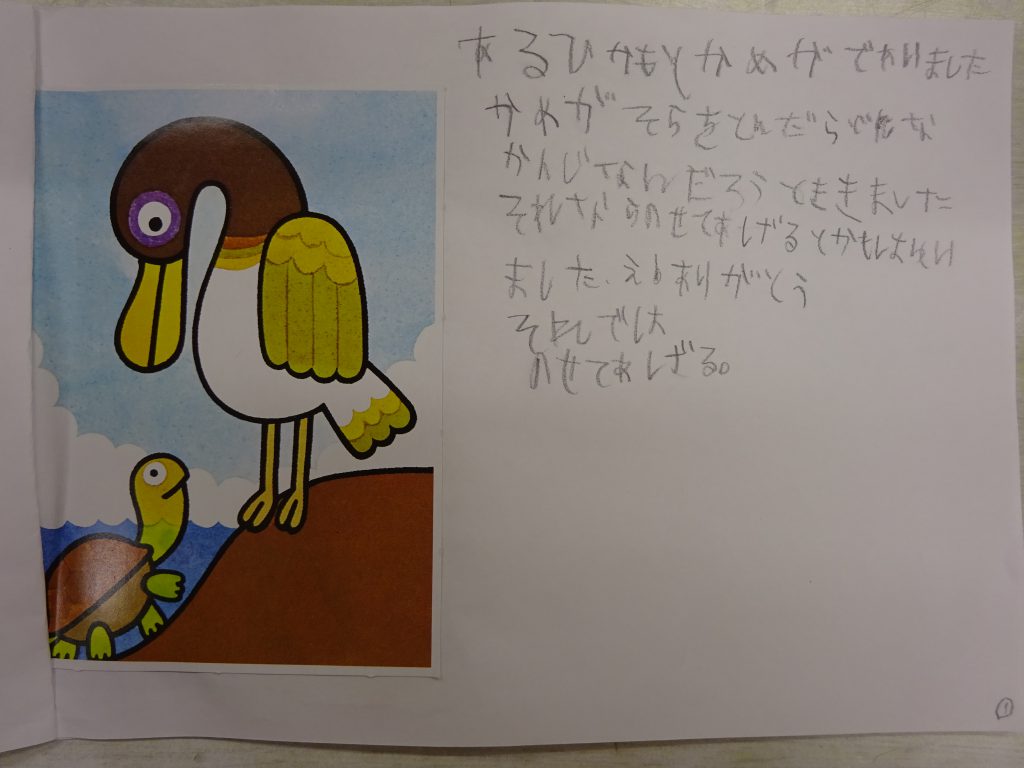 あるひかもとかめがでかいました
かめがそらをとんだらどんな
かんじなんだろうとききました
それならのせてあげるとかもはいい
ました、えありがとう
それでは
のせてあげる。
1